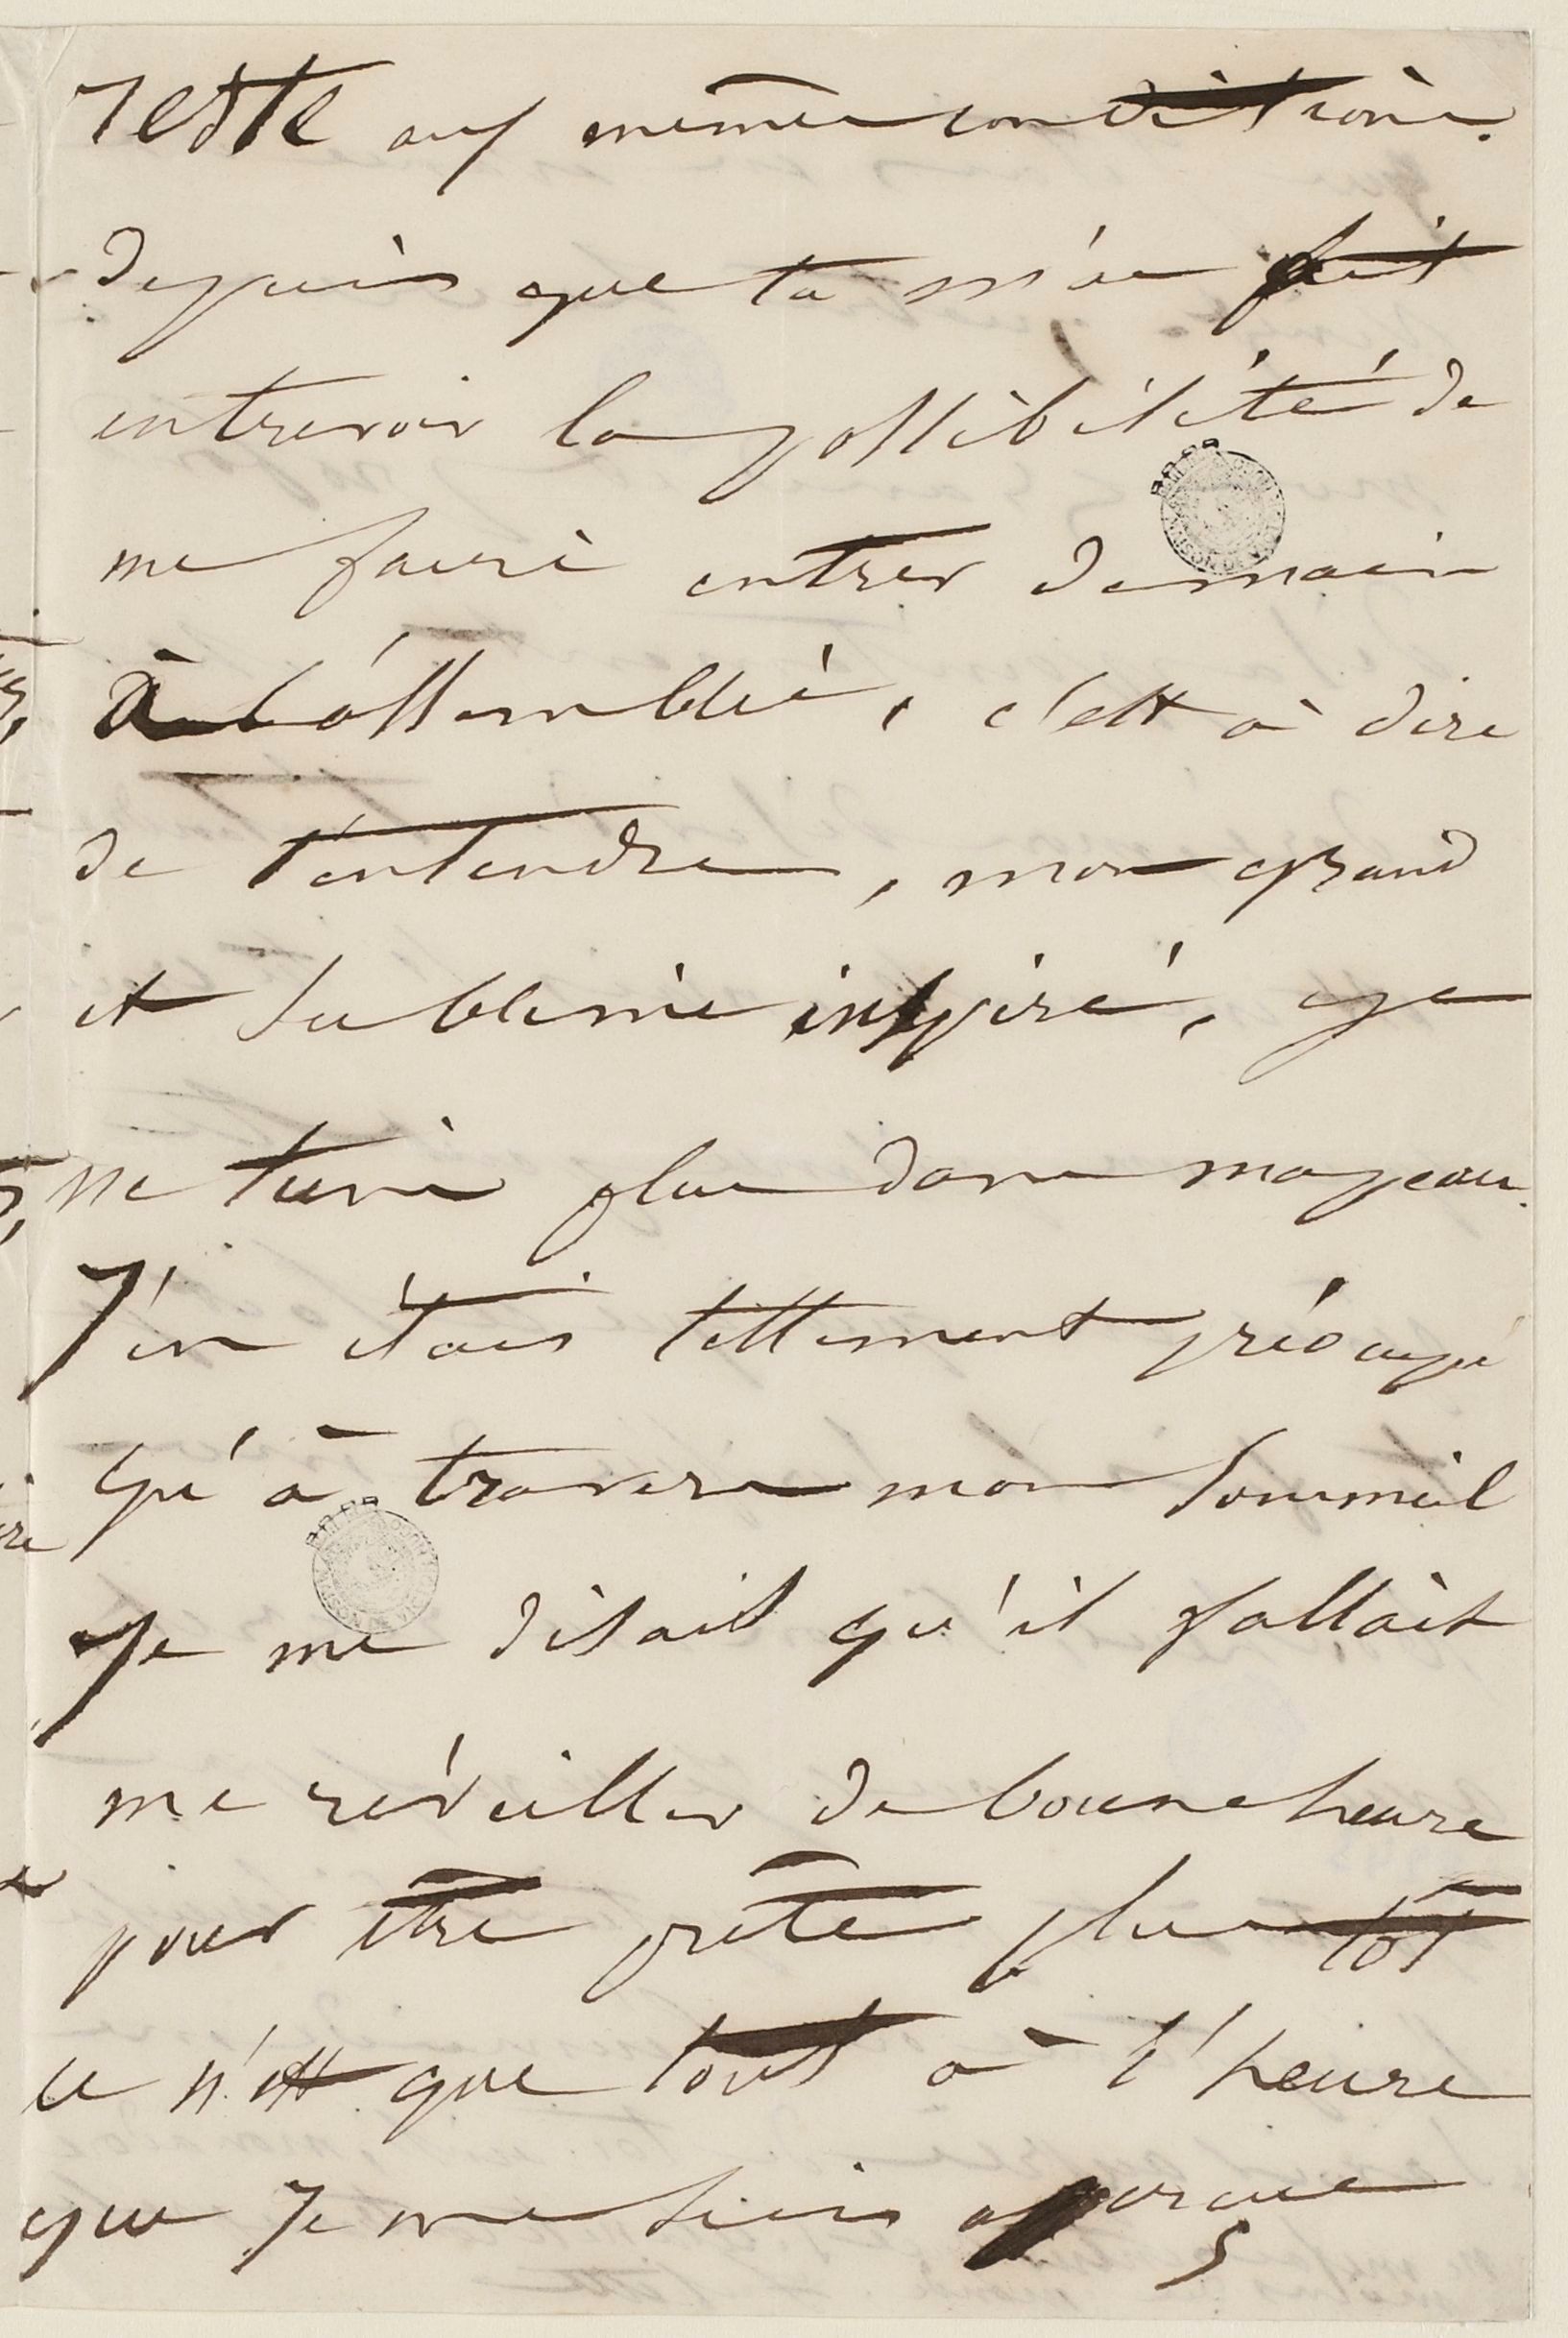 reste aux mêmes conditions.
depuis que tu m'as fait
entrevoir la possibilité de
me faire entrer demain
à l'assemblée, c'est à dire
de t'entendre, mon grand
et sublime inspiré, je
ne tiens plus dans ma peau.
J'en étais tellement préocupée
qu'à travers mon sommeil
je me disait qu'il fallait
me réveiller de bonne heure
pour être prête plus tôt
ce n'est que tout à l'heure
que je me suis apperçue